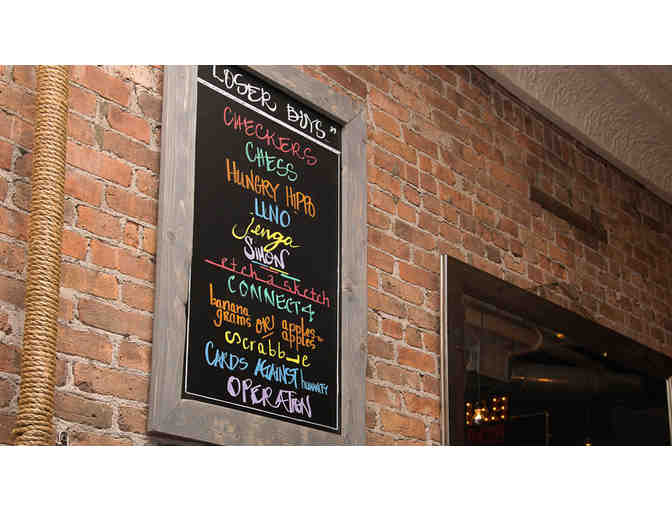 LOSER BUYS"
CHECKERS
CHESS
HUNGRY HIPPO
UNO
Jenga
SIMON
etch a sketch
CONNECT 4
banana grams OR apples to apples
Scrabble
CARDS AGAINST HUMANITY
OPERATION